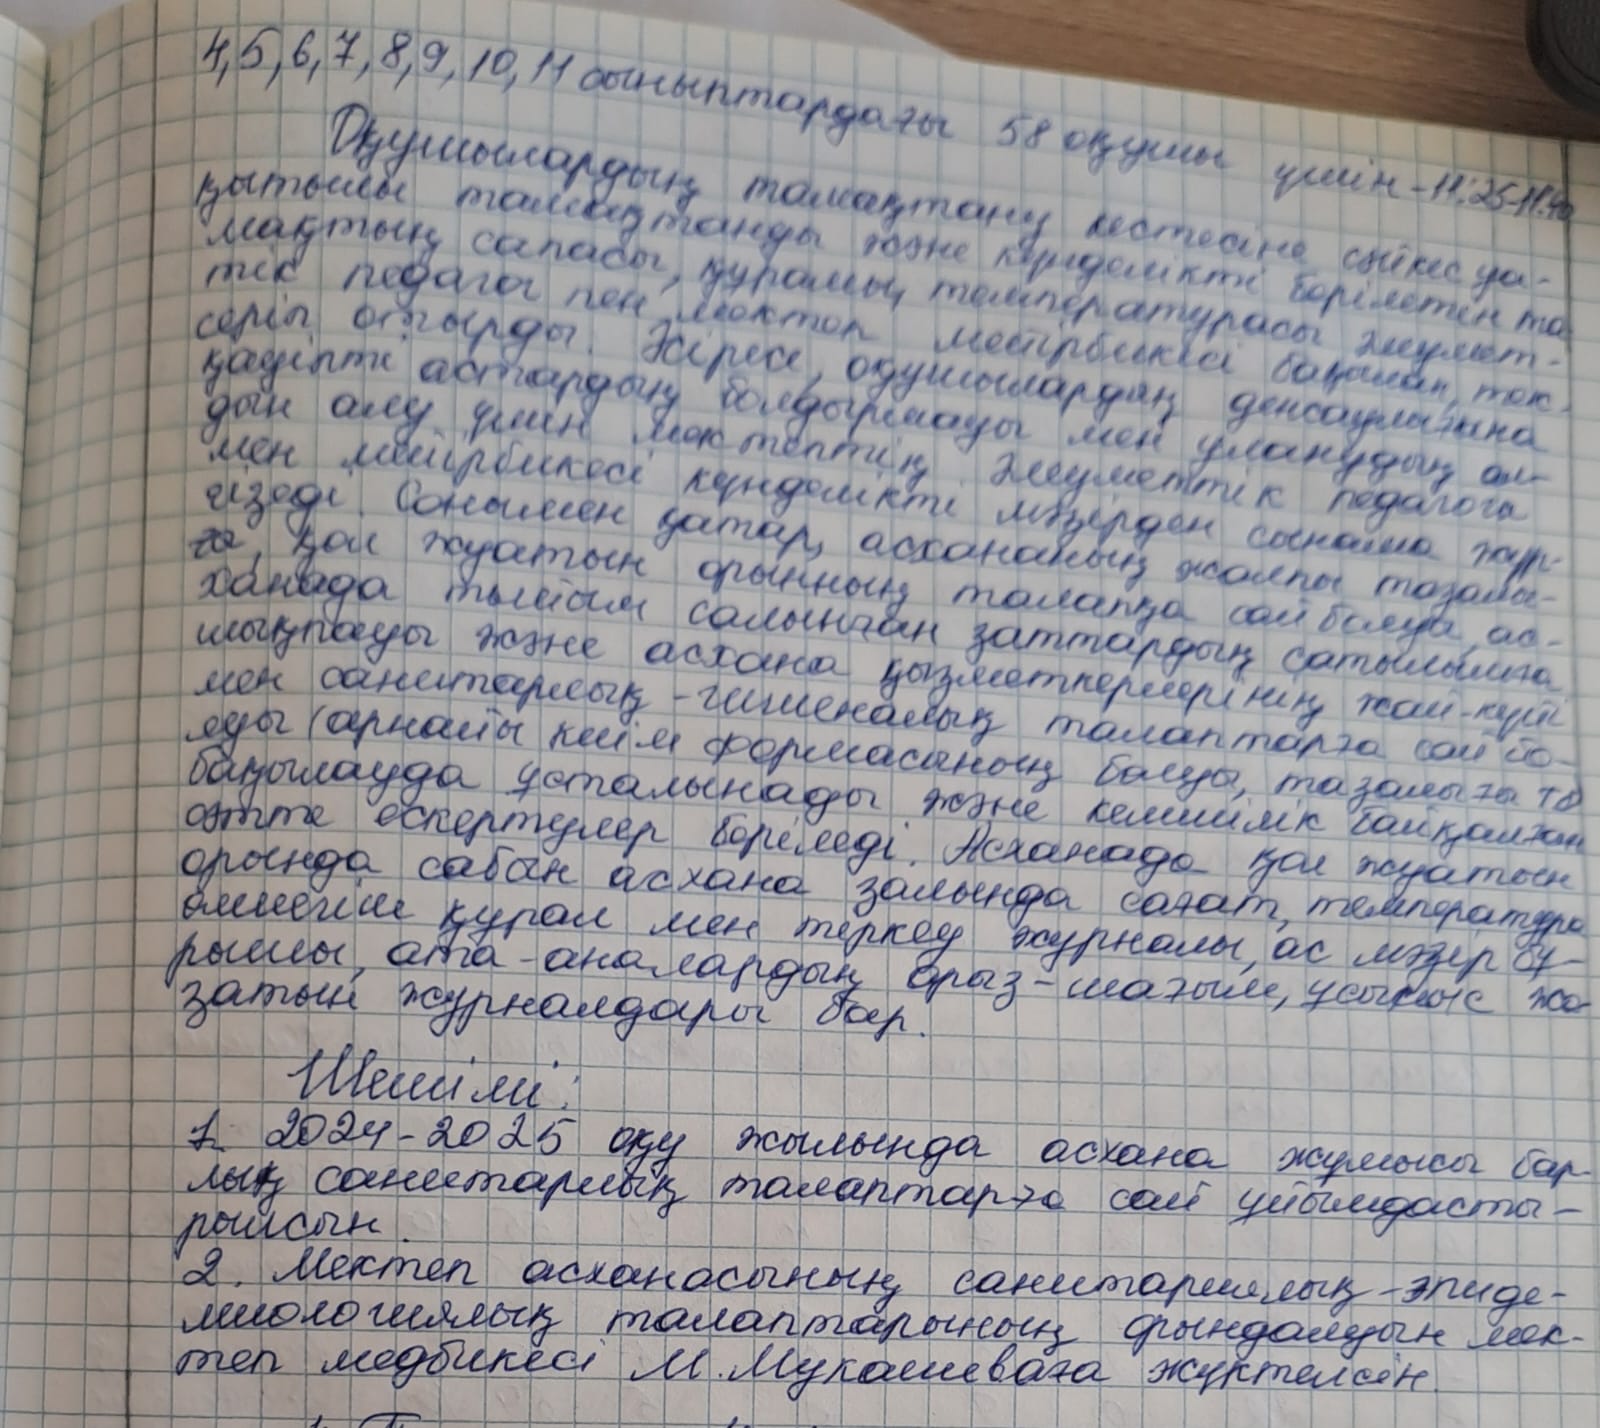 4,5,6,7,8,9,10,11 сыныптардағы 58 оқушы үшін -11:25-11:40
Оқушылардың тамақтану кестесіне сәйкес уа-
қытылы тамақтанды және күнделікті берілетін та
мақтың сапасы, құрамы, температурасы әлеумет-
тік педагог пен мектеп мейірбикесі бақылап, тек-
серіп отырды. Әсіресе, оқушылардың денсаулығына
қауіпті астардың болдырмауы мен уланудың ал-
дын алу үшін мектептің әлеуметтік педагогы
мен мейірбикесі күнделікті мәзірден сынама жүр-
гізеді. Сонымен қатар, асхананың жалпы тазалы-
ға, қол жуатын орынның талапқа сай болуы, ас-
ханада тыйым салынған заттардың сатылымға
шықпауы және асхана қызметкерлерінің жай-күйі
мен санитарлық-гигиеналық талаптарға сай бо-
луы (арнайы киім формасының болуы, тазалығы т.б
бақылауда ұсталынады және кемшілік байқалған
сәтте ескертулер беріледі. Асханада қол жуатын
орында сабын асхана залында сағат, температура
өлшегіш құрал мен теркеу журналы, ас мәзір бұ-
рышы, ата-аналардың арыз-шағым, ұсыныс жа-
затын журналдары бар.
Шешімі:
1. 2024-2025 оқу жылында асхана жұмысы бар-
лық санитарлық талаптарға сай ұйымдасты-
рылсын.
2. Мектеп асханасының санитариялық-эпиде-
миологиялық талаптарының орындалуын мек-
теп медбикесі М.Мукашеваға жүктелсін.